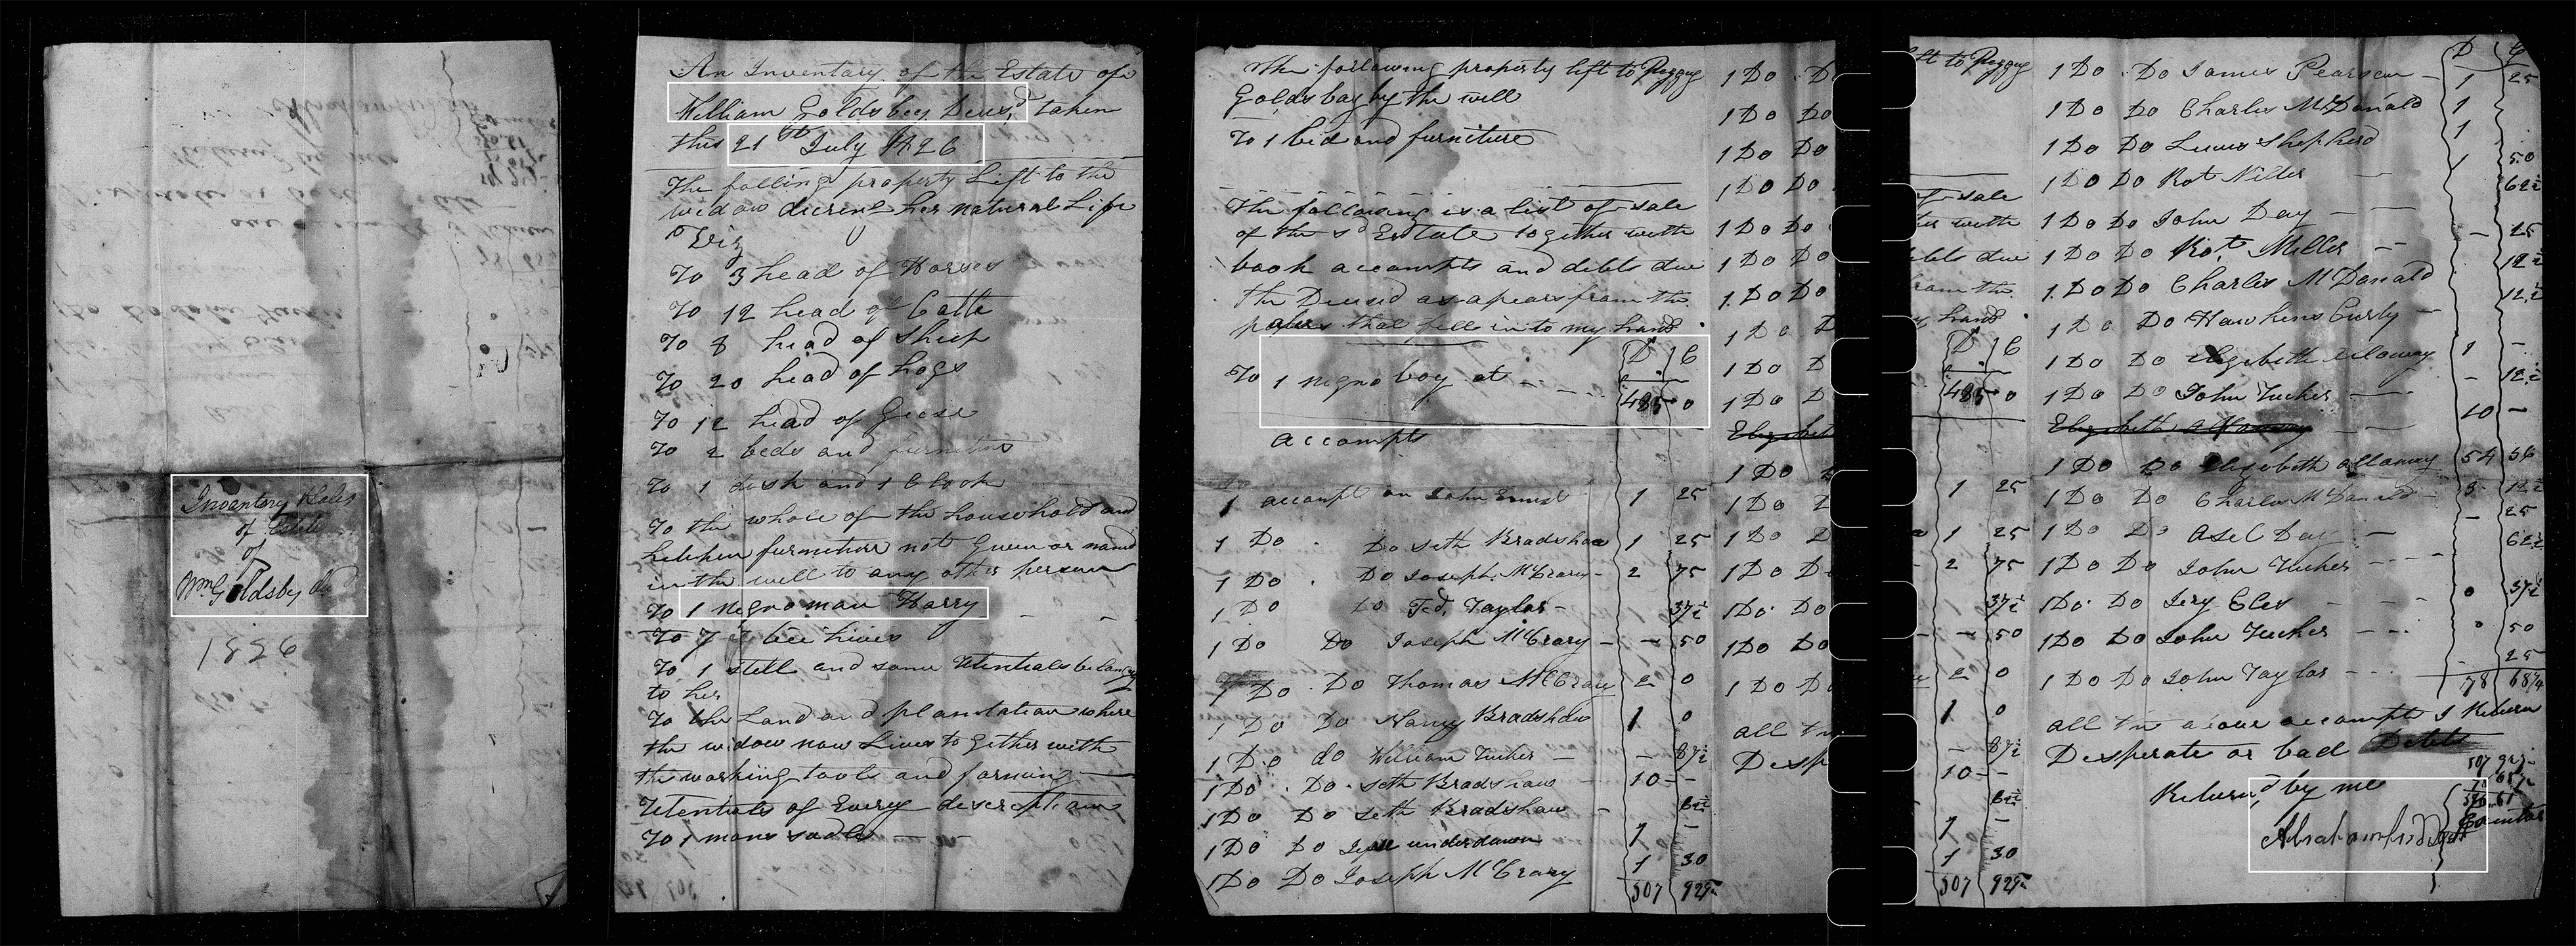 Inventory & Sales
of Estate
of
Wm Goldsby decd
1826
An Inventory of the Estate of
William Goldsbey Decsd, taken
this 21st July 1826
The folling property Lift to the
widow dureing her natural Life
Viz
To 3 head of Horses
To 12 head of Cattle
To 8 head of Sheep
To 20 head of hogs
To 12 head of Geese
To 2 beds and furniture
To 1 desk and 1 Clock
To the whole of the household and
kitchen furniture not Given or named
in the will to any other person
To 1 negro man Harry
To 7 bee hives
To 1 still and some Utentials belong
to her
To the Land and plantation where
the widow now Lives to Gether with
the working tools and farming
Utentials of Every description
To 1 mans sadle
The following property left to Peggy
Goldsbay by the will
To 1 bed and furniture
The following is a list of sale
of the sd Estate together with
book accompts and debts due
the Decsed as apears from the
papers that fell in to my hand
D C
To 1 negro boy at 485 0
accompts
1 accompt on John Ernest 1 25
1 Do Do Seth Bradshaw 1 25
1 Do Do Joseph McCrary 2 75
1 Do Do Ted, Taylor 37½
1 Do Do Joseph McCrary 50
1 Do Do Thomas McCrary 2 0
1 Do Do Nancy Bradshaw 1 0
1 Do do William Tucker 87½
1 Do Do Seth Bradshaw 10
1 Do Do Seth Bradshaw 6¼
1 Do Do underdown 1
1 Do Do Joseph McCrary 1 30
507 92½
D C
1 Do Do James Pearson 1 25
1 Do Do Charles McDonald 1
1 Do Do Lewis Shepherd 1
1 Do Do Rot Miller 1 50
1 Do Do John Day 62½
1 Do Do Rot Miller 25
1 Do Do Charles McDanald 12½
1 Do Do Hawkens Curly 12½
1 Do Do Elizebeth Allaway 1
1 Do Do John Tucker 12½
Elizabeth Allaway 10
1 Do Do Elizebeth allaway 54 56
1 Do Do Charles McDanald 3 12½
1 Do Do Asel Day 25
1 Do Do John Tucker 62½
1 Do Do Jery Eles 37½
1 Do Do John Tucker 50
1 Do Do John Taylor 25
78 68¾
all the above accompts I Return
Desperate or bad Debts
507 92½
Returnd by me